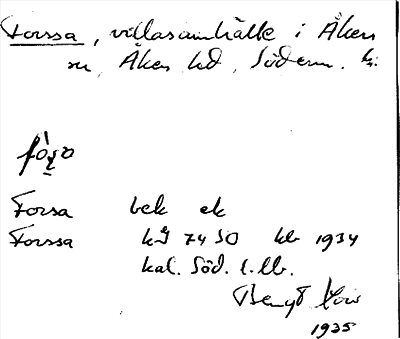 Forssa, villasamhälle i Åkers
sn, Åkers hd, Söderm. l:
Forsa bek ek
Forssa kJ 7450 hb 1934
kal. Söd. l. lb.
Bengt
1935